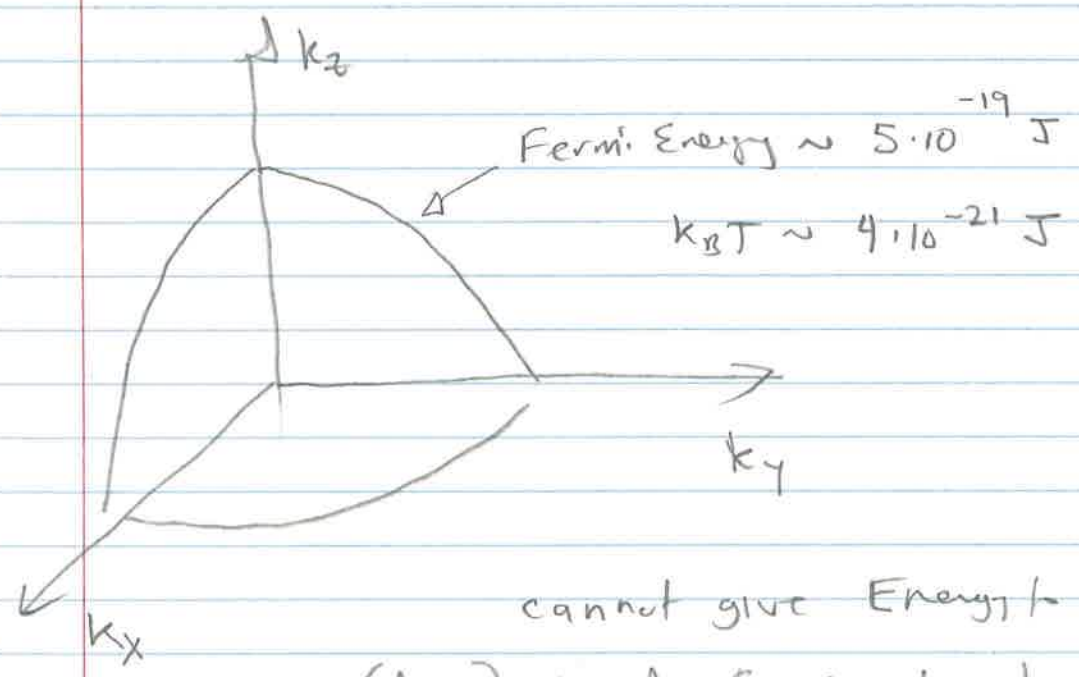 kz
Fermi Energy ~ 5·10^-19 J
kBT ~ 4·10^-21 J
ky
cannot give Energy
kx